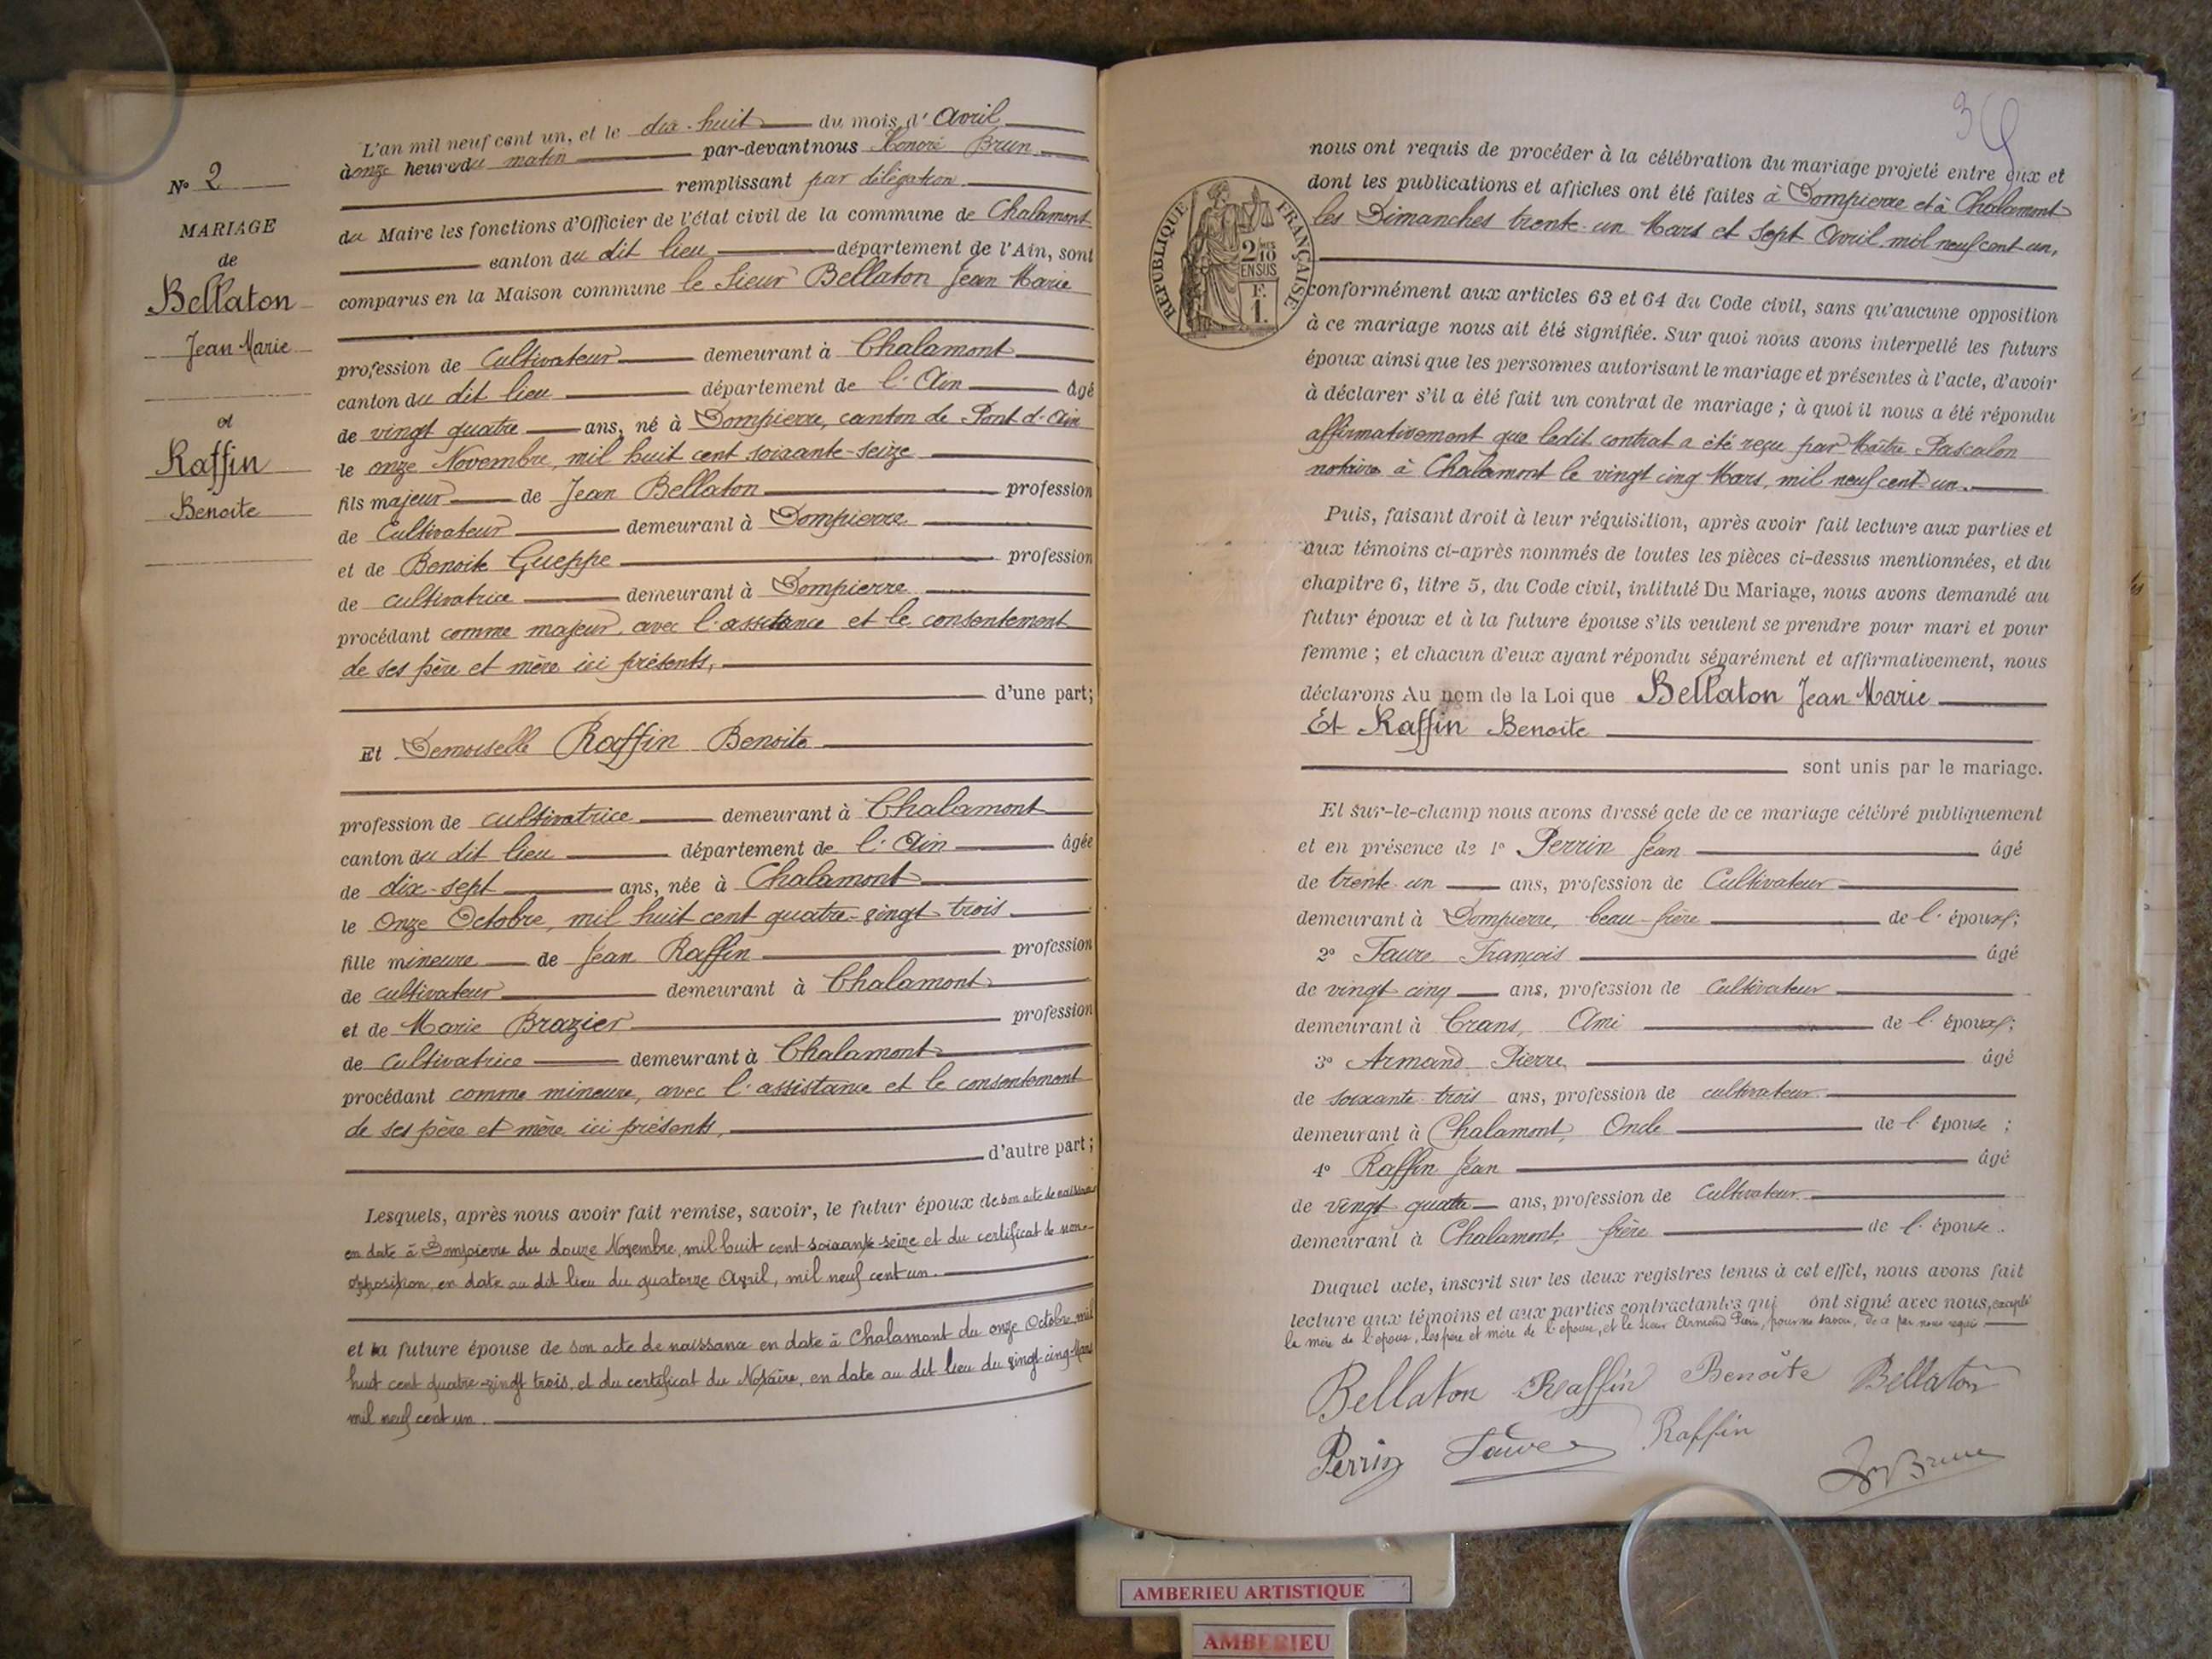 N° 2
MARIAGE
de
Bellaton
Jean Marie
et
Raffin
Benoite
L'an mil neuf cent un, et le dix-huit du mois d'Avril
à onze heures du matin par-devant nous Honoré Brun
remplissant par délégation
du Maire les fonctions d'Officier de l'état civil de la commune de Chalamont
canton du dit lieu département de l'Ain, sont
comparus en la Maison commune le Sieur Bellaton Jean Marie
profession de Cultivateur demeurant à Chalamont
canton du dit lieu département de l'Ain âgé
de vingt quatre ans, né à Dompierre, canton de Pont-d'Ain
le onze Novembre, mil huit cent soixante-seize
fils majeur de Jean Bellaton profession
de Cultivateur demeurant à Dompierre
et de Benoite Gueppe profession
de cultivatrice demeurant à Dompierre
procédant comme majeur, avec l'assistance et le consentement
de ses père et mère ici présents,
d'une part;
Et Demoiselle Raffin Benoite
profession de cultivatrice demeurant à Chalamont
canton du dit lieu département de l'Ain âgée
de dix-sept ans, née à Chalamont
le Onze Octobre, mil huit cent quatre-vingt trois
fille mineure de Jean Raffin profession
de cultivateur demeurant à Chalamont
et de Marie Brazier profession
de Cultivatrice demeurant à Chalamont
procédant comme mineure, avec l'assistance et le consentement
de ses père et mère ici présents,
d'autre part;
Lesquels, après nous avoir fait remise, savoir, le futur époux de son acte de naissance
en date à Dompierre du douze Novembre, mil huit cent soixante-seize et du certificat de non-
opposition, en date au dit lieu du quatorze Avril, mil neuf cent un.
et la future épouse de son acte de naissance en date à Chalamont du onze Octobre mil
huit cent quatre-vingt trois, et du certificat du Notaire, en date au dit lieu du vingt-cinq Mars
mil neuf cent un.
3
REPUBLIQUE FRANÇAISE
2/10
EN SUS
F.
1.
nous ont requis de procéder à la célébration du mariage projeté entre eux et
dont les publications et affiches ont été faites à Dompierre et à Chalamont
les Dimanches trente-un Mars et sept Avril mil neuf cent un,
conformément aux articles 63 et 64 du Code civil, sans qu'aucune opposition
à ce mariage nous ait été signifiée. Sur quoi nous avons interpellé les futurs
époux ainsi que les personnes autorisant le mariage et présentes à l'acte, d'avoir
à déclarer s'il a été fait un contrat de mariage; à quoi il nous a été répondu
affirmativement que ledit contrat a été reçu par Maître Pascalon
notaire à Chalamont le vingt cinq Mars, mil neuf cent un.
Puis, faisant droit à leur réquisition, après avoir fait lecture aux parties et
aux témoins ci-après nommés de toutes les pièces ci-dessus mentionnées, et du
chapitre 6, titre 5, du Code civil, intitulé Du Mariage, nous avons demandé au
futur époux et à la future épouse s'ils veulent se prendre pour mari et pour
femme; et chacun d'eux ayant répondu séparément et affirmativement, nous
déclarons Au nom de la Loi que Bellaton Jean Marie
Et Raffin Benoite
sont unis par le mariage.
Et sur-le-champ nous avons dressé acte de ce mariage célébré publiquement
et en présence de 1° Perrin Jean âgé
de trente un ans, profession de Cultivateur
demeurant à Dompierre, beau-frère de l'époux;
2° Faure François âgé
de vingt cinq ans, profession de Cultivateur
demeurant à Crans, Ami de l'époux;
3° Armand Pierre âgé
de soixante trois ans, profession de cultivateur
demeurant à Chalamont, Oncle de l'épouse;
4° Raffin Jean âgé
de vingt quatre ans, profession de Cultivateur
demeurant à Chalamont, frère de l'épouse.
Duquel acte, inscrit sur les deux registres tenus à cet effet, nous avons fait
lecture aux témoins et aux parties contractantes qui ont signé avec nous, excepté
la mère de l'époux, les père et mère de l'épouse, et le sieur Armand Pierre, pour ne savoir, de ce par nous requis
Bellaton Raffin Benoîte Bellaton
Perrin Faure Raffin
Brun
AMBERIEU ARTISTIQUE
AMBERIEU